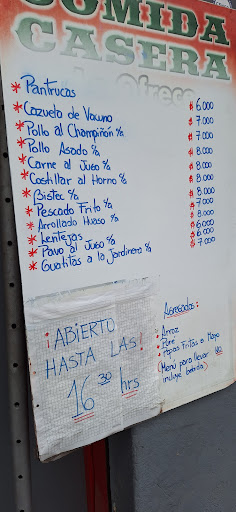 COMIDA
CASERA
* Pantrucas $ 6.000
* Cazuela de Vacuno $ 7.000
* Pollo al Champiñón c/a $ 7.000
* Pollo Asado c/a $ 8.000
* Carne al Jugo c/a $ 8.000
* Costillar al Horno c/a $ 8.000
* Bistec c/a $ 8.000
* Pescado Frito c/a $ 7.000
* Arrollado Huaso c/a $ 8.000
* Lentejas $ 6.000
* Pavo al Jugo c/a $ 6.000
* Guatitas a la Jardinera c/a $ 7.000
Agregados:
* Arroz
* Puré
* Papas Fritas o Mayo
(Menú para llevar no
incluye bebida)
¡ABIERTO
HASTA LAS!
16 30 hrs